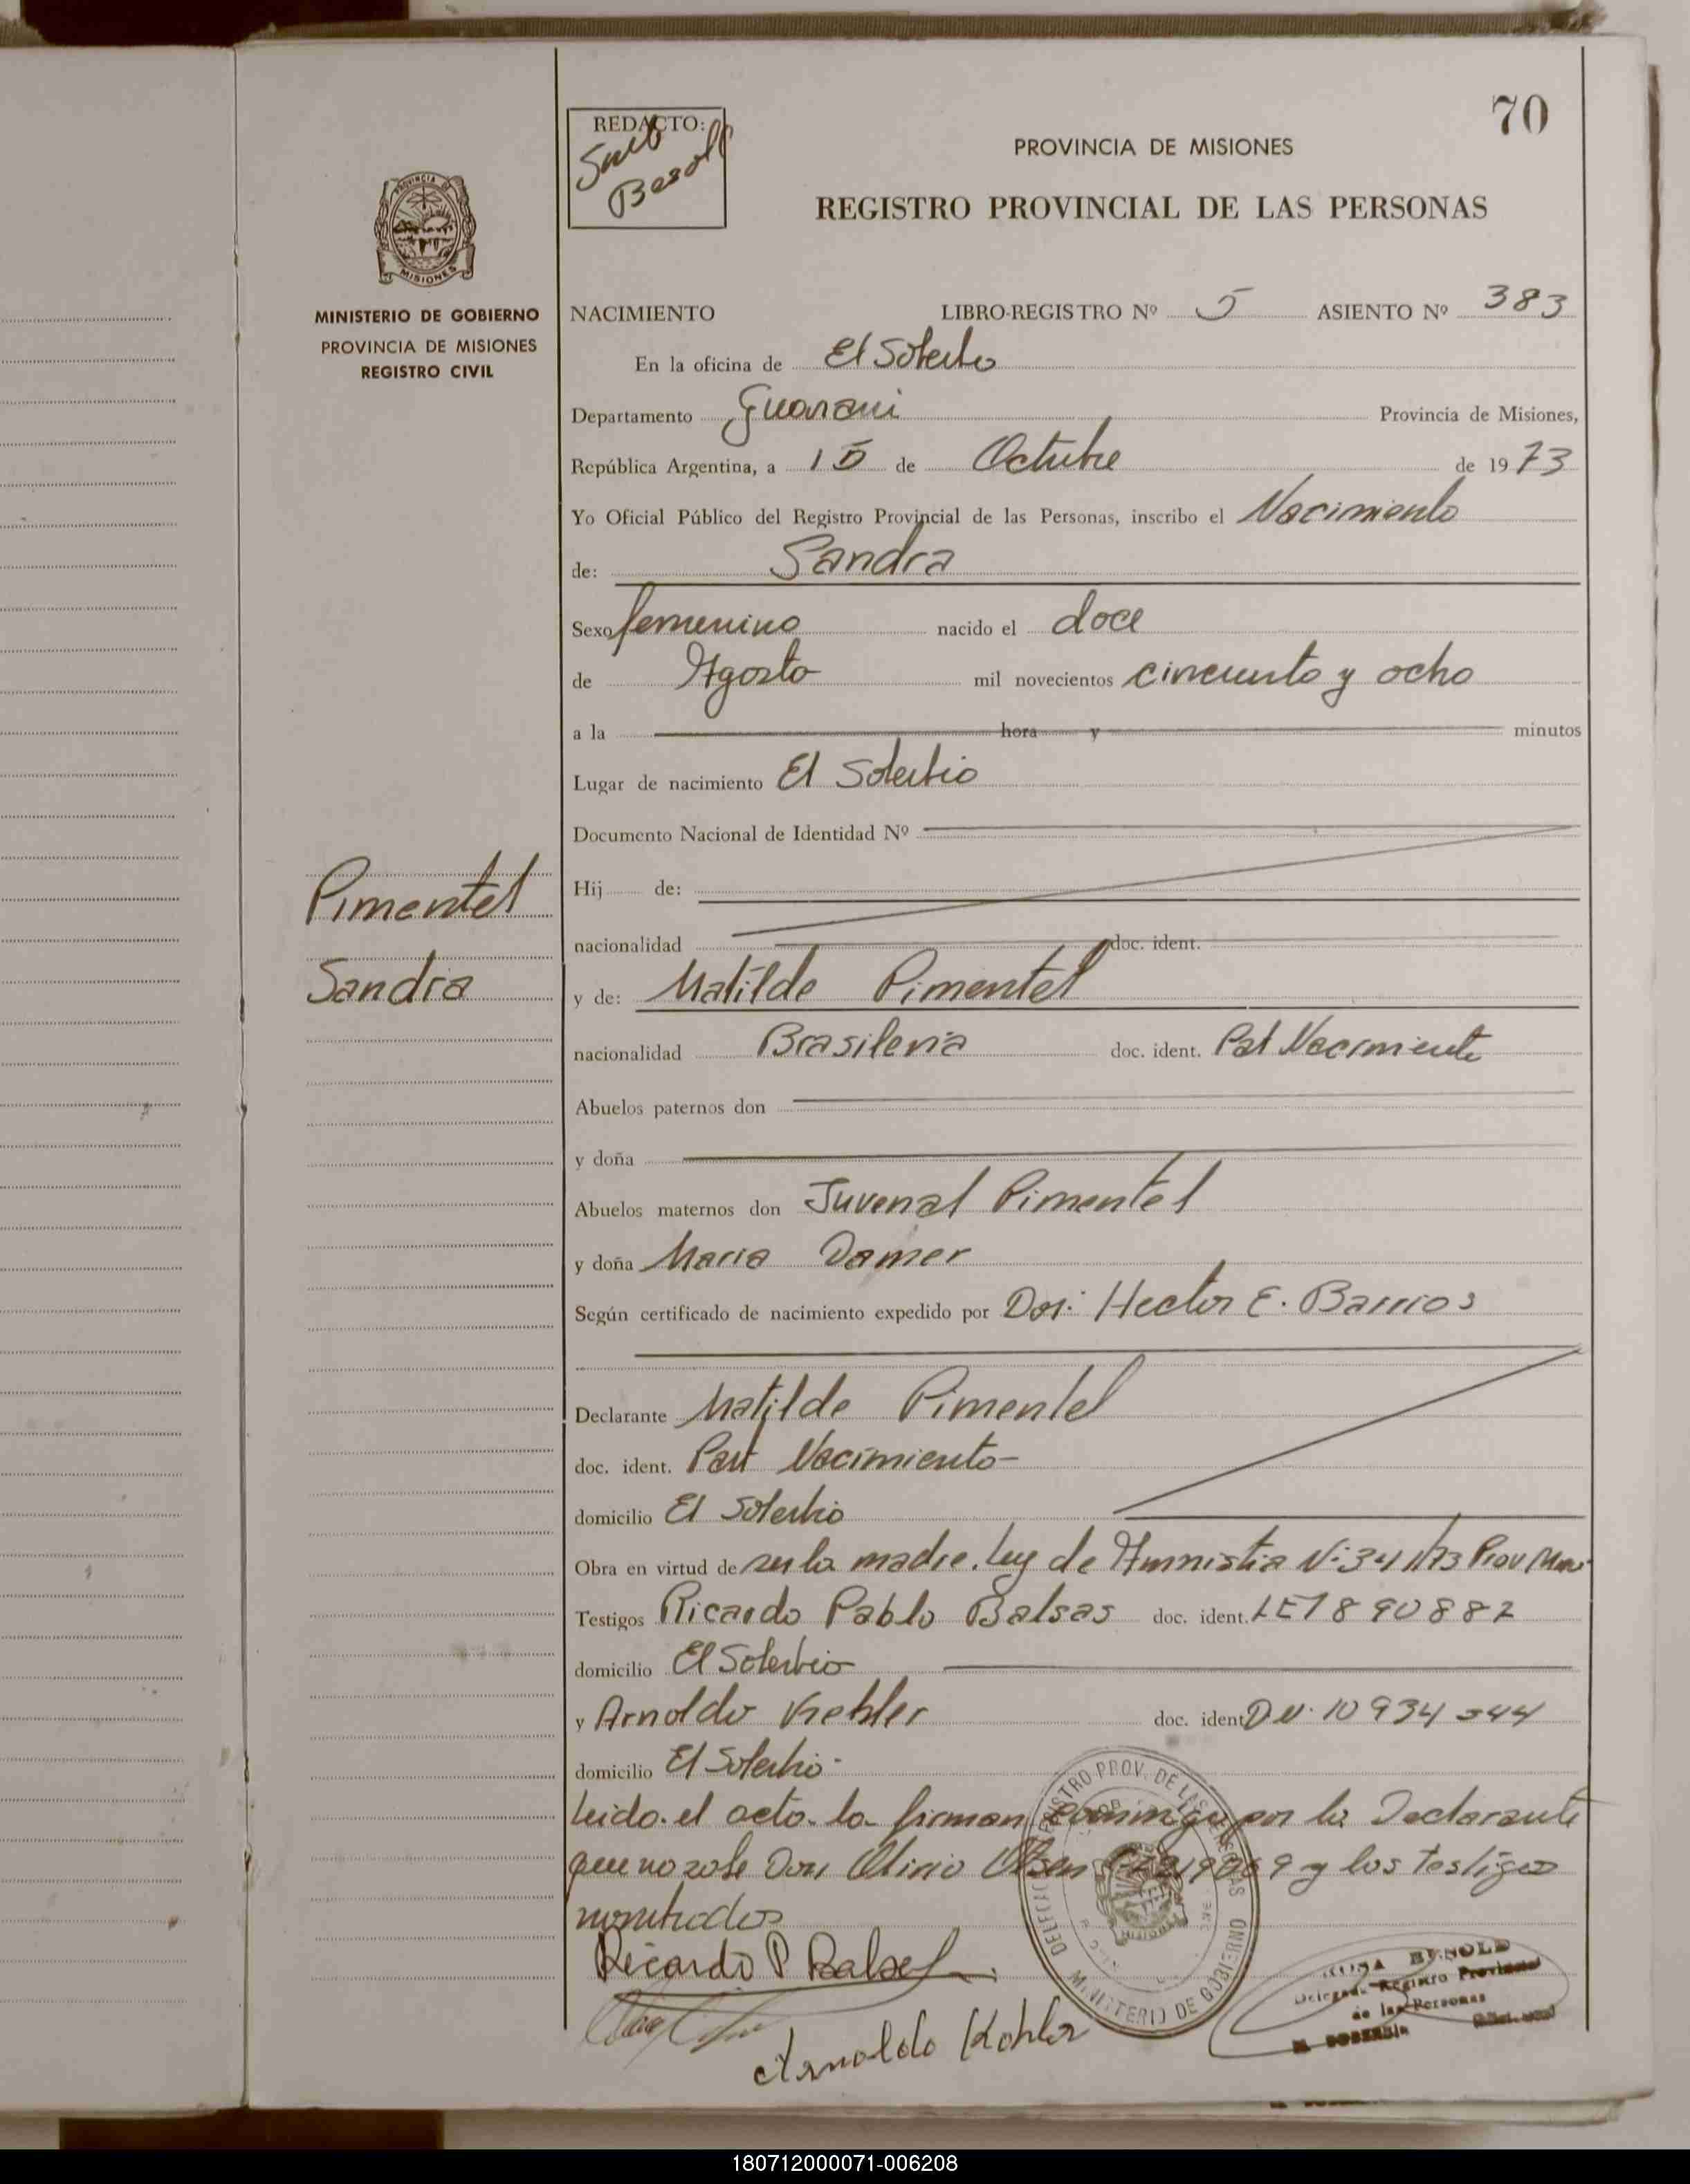 70
REDACTO:
PROVINCIA DE MISIONES
REGISTRO PROVINCIAL DE LAS PERSONAS
PROVINCIA DE
MISIONES
MINISTERIO DE GOBIERNO
PROVINCIA DE MISIONES
REGISTRO CIVIL
NACIMIENTO LIBRO-REGISTRO Nº 5 ASIENTO Nº 383
En la oficina de El Soberbio
Departamento Guarani Provincia de Misiones,
República Argentina, a 15 de Octubre de 1973
Yo Oficial Público del Registro Provincial de las Personas, inscribo el Nacimiento
de: Sandra
Sexo femenino nacido el doce
de Agosto mil novecientos cincuenta y ocho
a la hora y minutos
Lugar de nacimiento El Soberbio
Documento Nacional de Identidad Nº
Hij de:
nacionalidad doc. ident.
Pimentel
Sandra
y de: Matilde Pimentel
nacionalidad Brasileña doc. ident. Pat Nacimiento
Abuelos paternos don
y doña
Abuelos maternos don Juvenal Pimentel
y doña Maria Damer
Según certificado de nacimiento expedido por Hector E. Barrios
Declarante Matilde Pimentel
doc. ident. Part Nacimiento
domicilio El Soberbio
Obra en virtud de ser la madre. Ley de Amnistia Nº 341/73
Testigos Ricardo Pablo Balsas doc. ident. LE7890882
domicilio El Soberbio
y Arnoldo doc. ident
domicilio El Soberbio
Leido el acto la firman conmigo por la Declarante
que no sabe Don Olirio y los testigos
nombrados
Ricardo P Balsas
Arnoldo Kohler
REGISTRO PROV. DE LAS PERSONAS
MINISTERIO DE GOBIERNO
BENOLD
Registro Provincial
de las Personas
180712000071-006208